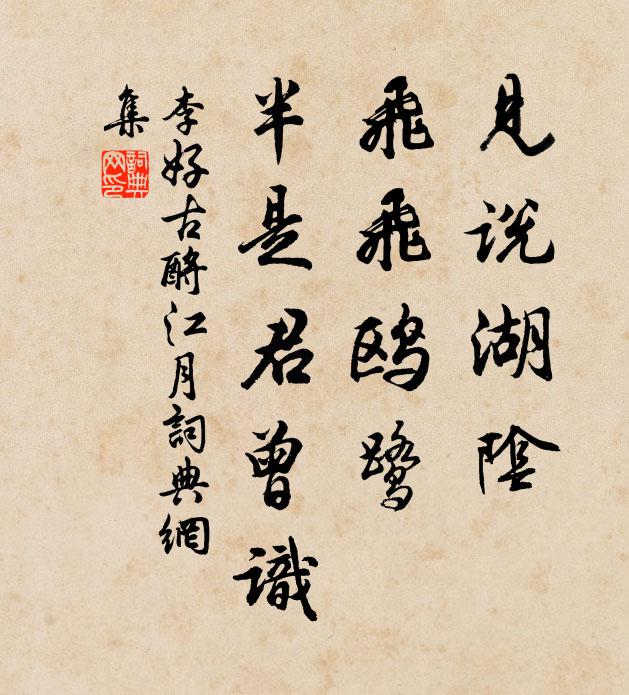 見説湖陰
飛飛鸥鹭
半是君曾識
李好古酹江月詞典網
集
詞典
网印